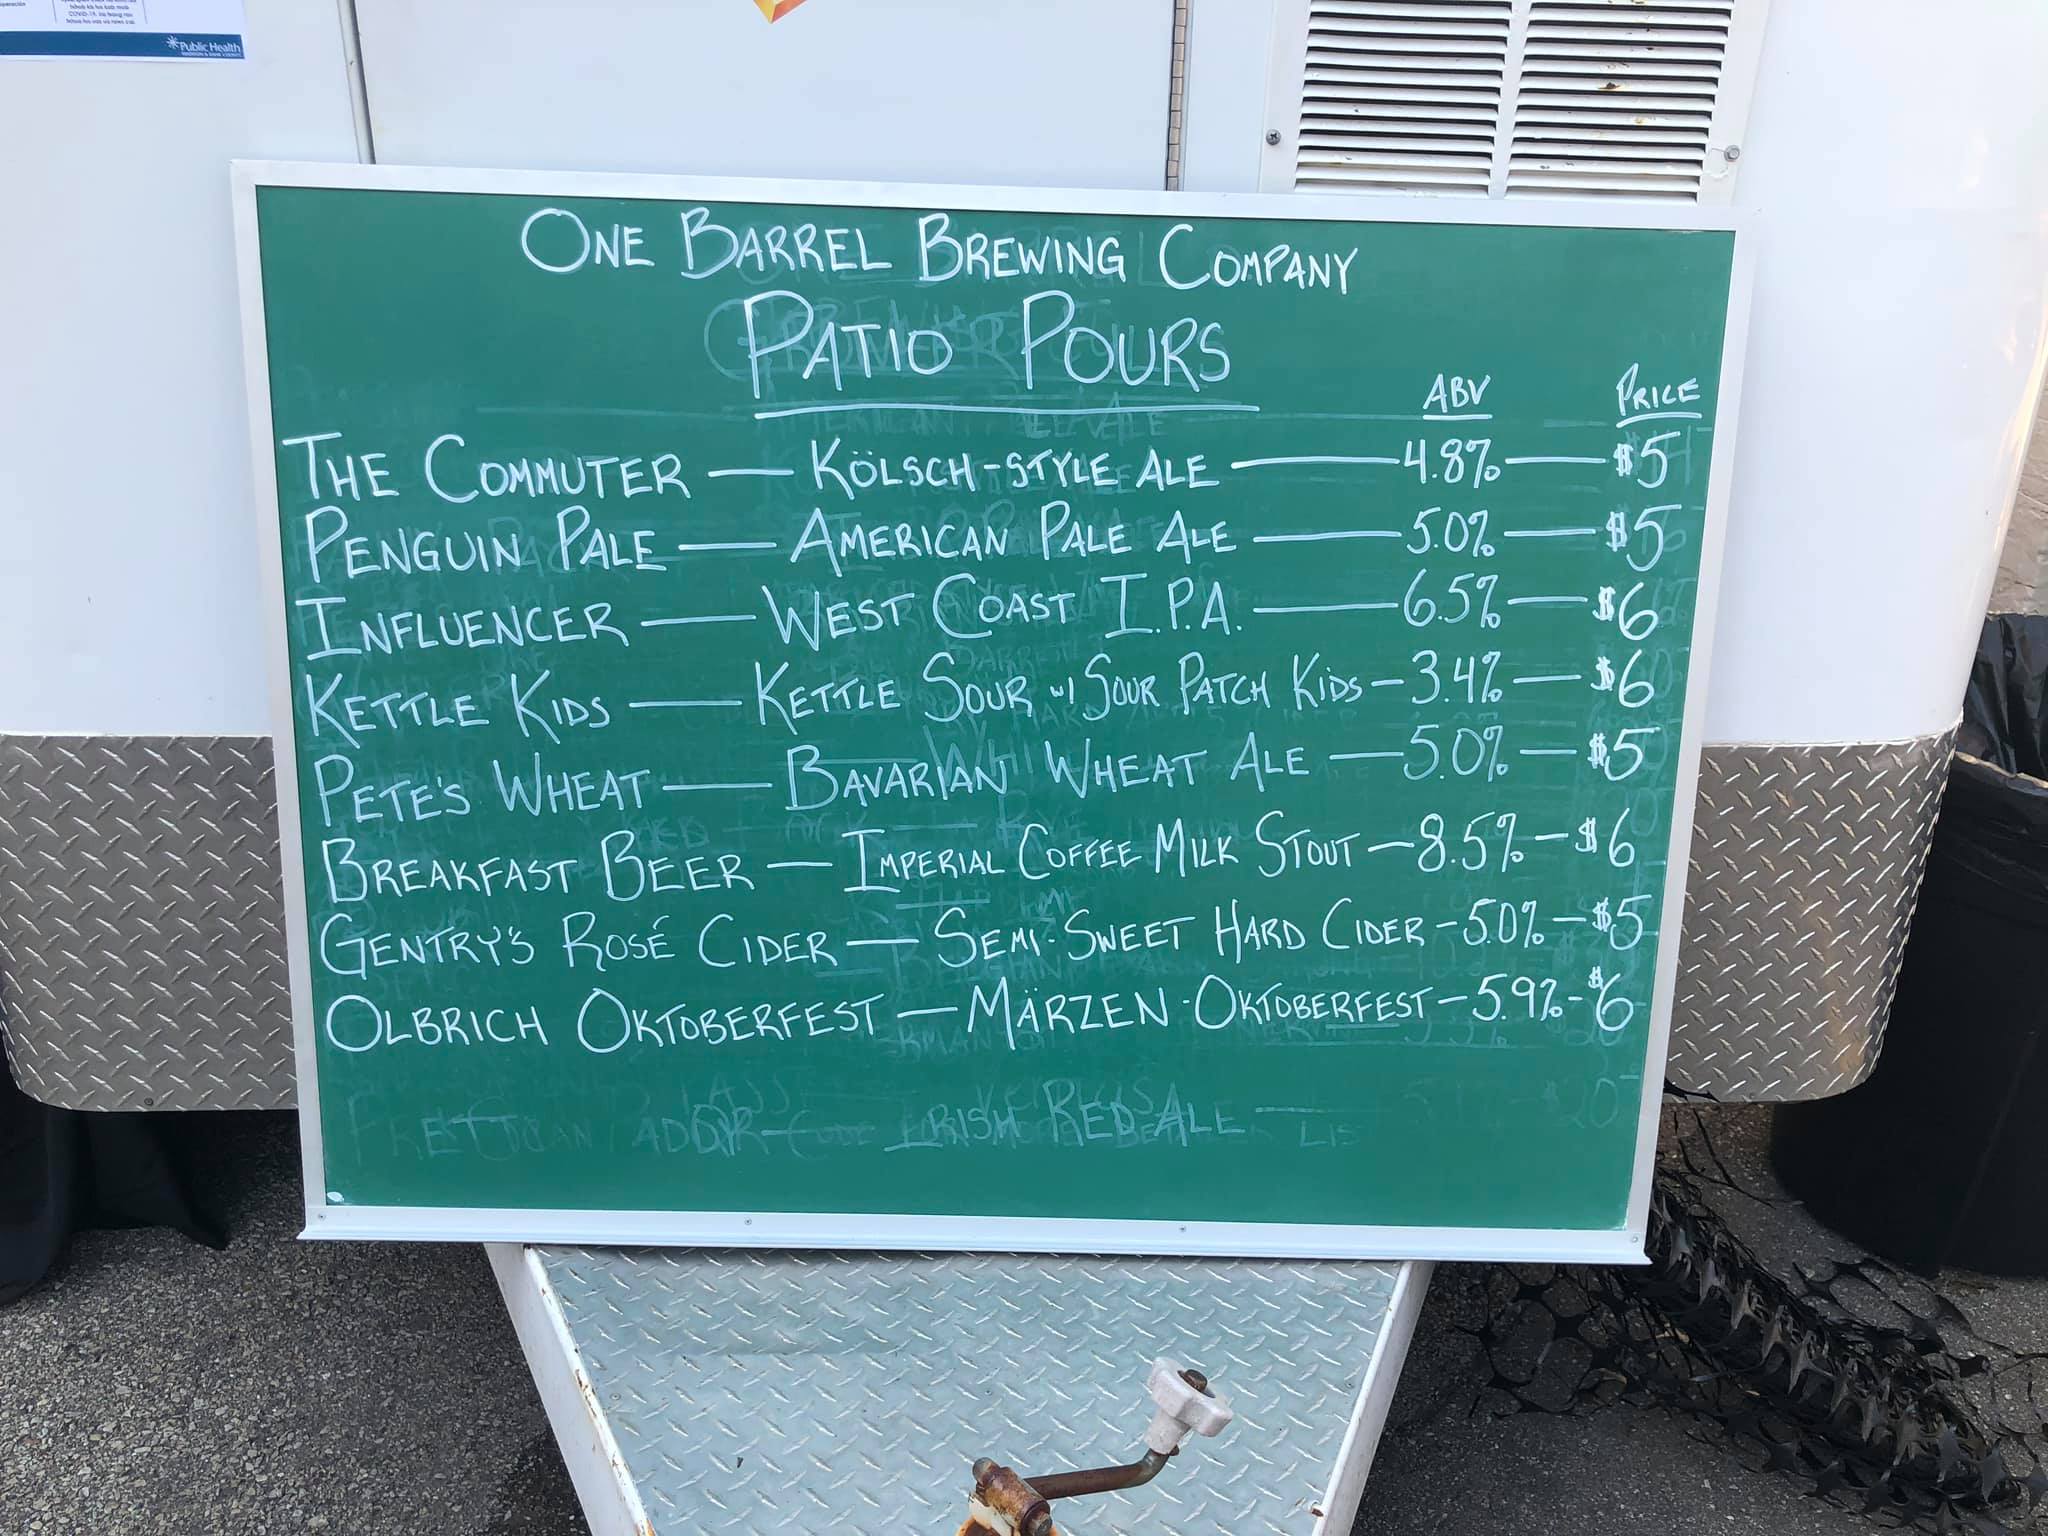 COVID-19.
Public Health
MADISON & DANE COUNTY
ONE BARREL BREWING COMPANY
PATIO POURS
ABV PRICE
THE COMMUTER — KÖLSCH-STYLE ALE — 4.8% — $5
PENGUIN PALE — AMERICAN PALE ALE — 5.0% — $5
INFLUENCER — WEST COAST I.P.A. — 6.5% — $6
KETTLE KIDS — KETTLE SOUR W/ SOUR PATCH KIDS — 3.4% — $6
PETE'S WHEAT — BAVARIAN WHEAT ALE — 5.0% — $5
BREAKFAST BEER — IMPERIAL COFFEE MILK STOUT — 8.5% — $6
GENTRY'S ROSÉ CIDER — SEMI-SWEET HARD CIDER — 5.0% — $5
OLBRICH OKTOBERFEST — MÄRZEN-OKTOBERFEST — 5.9% — $6
IRISH RED ALE